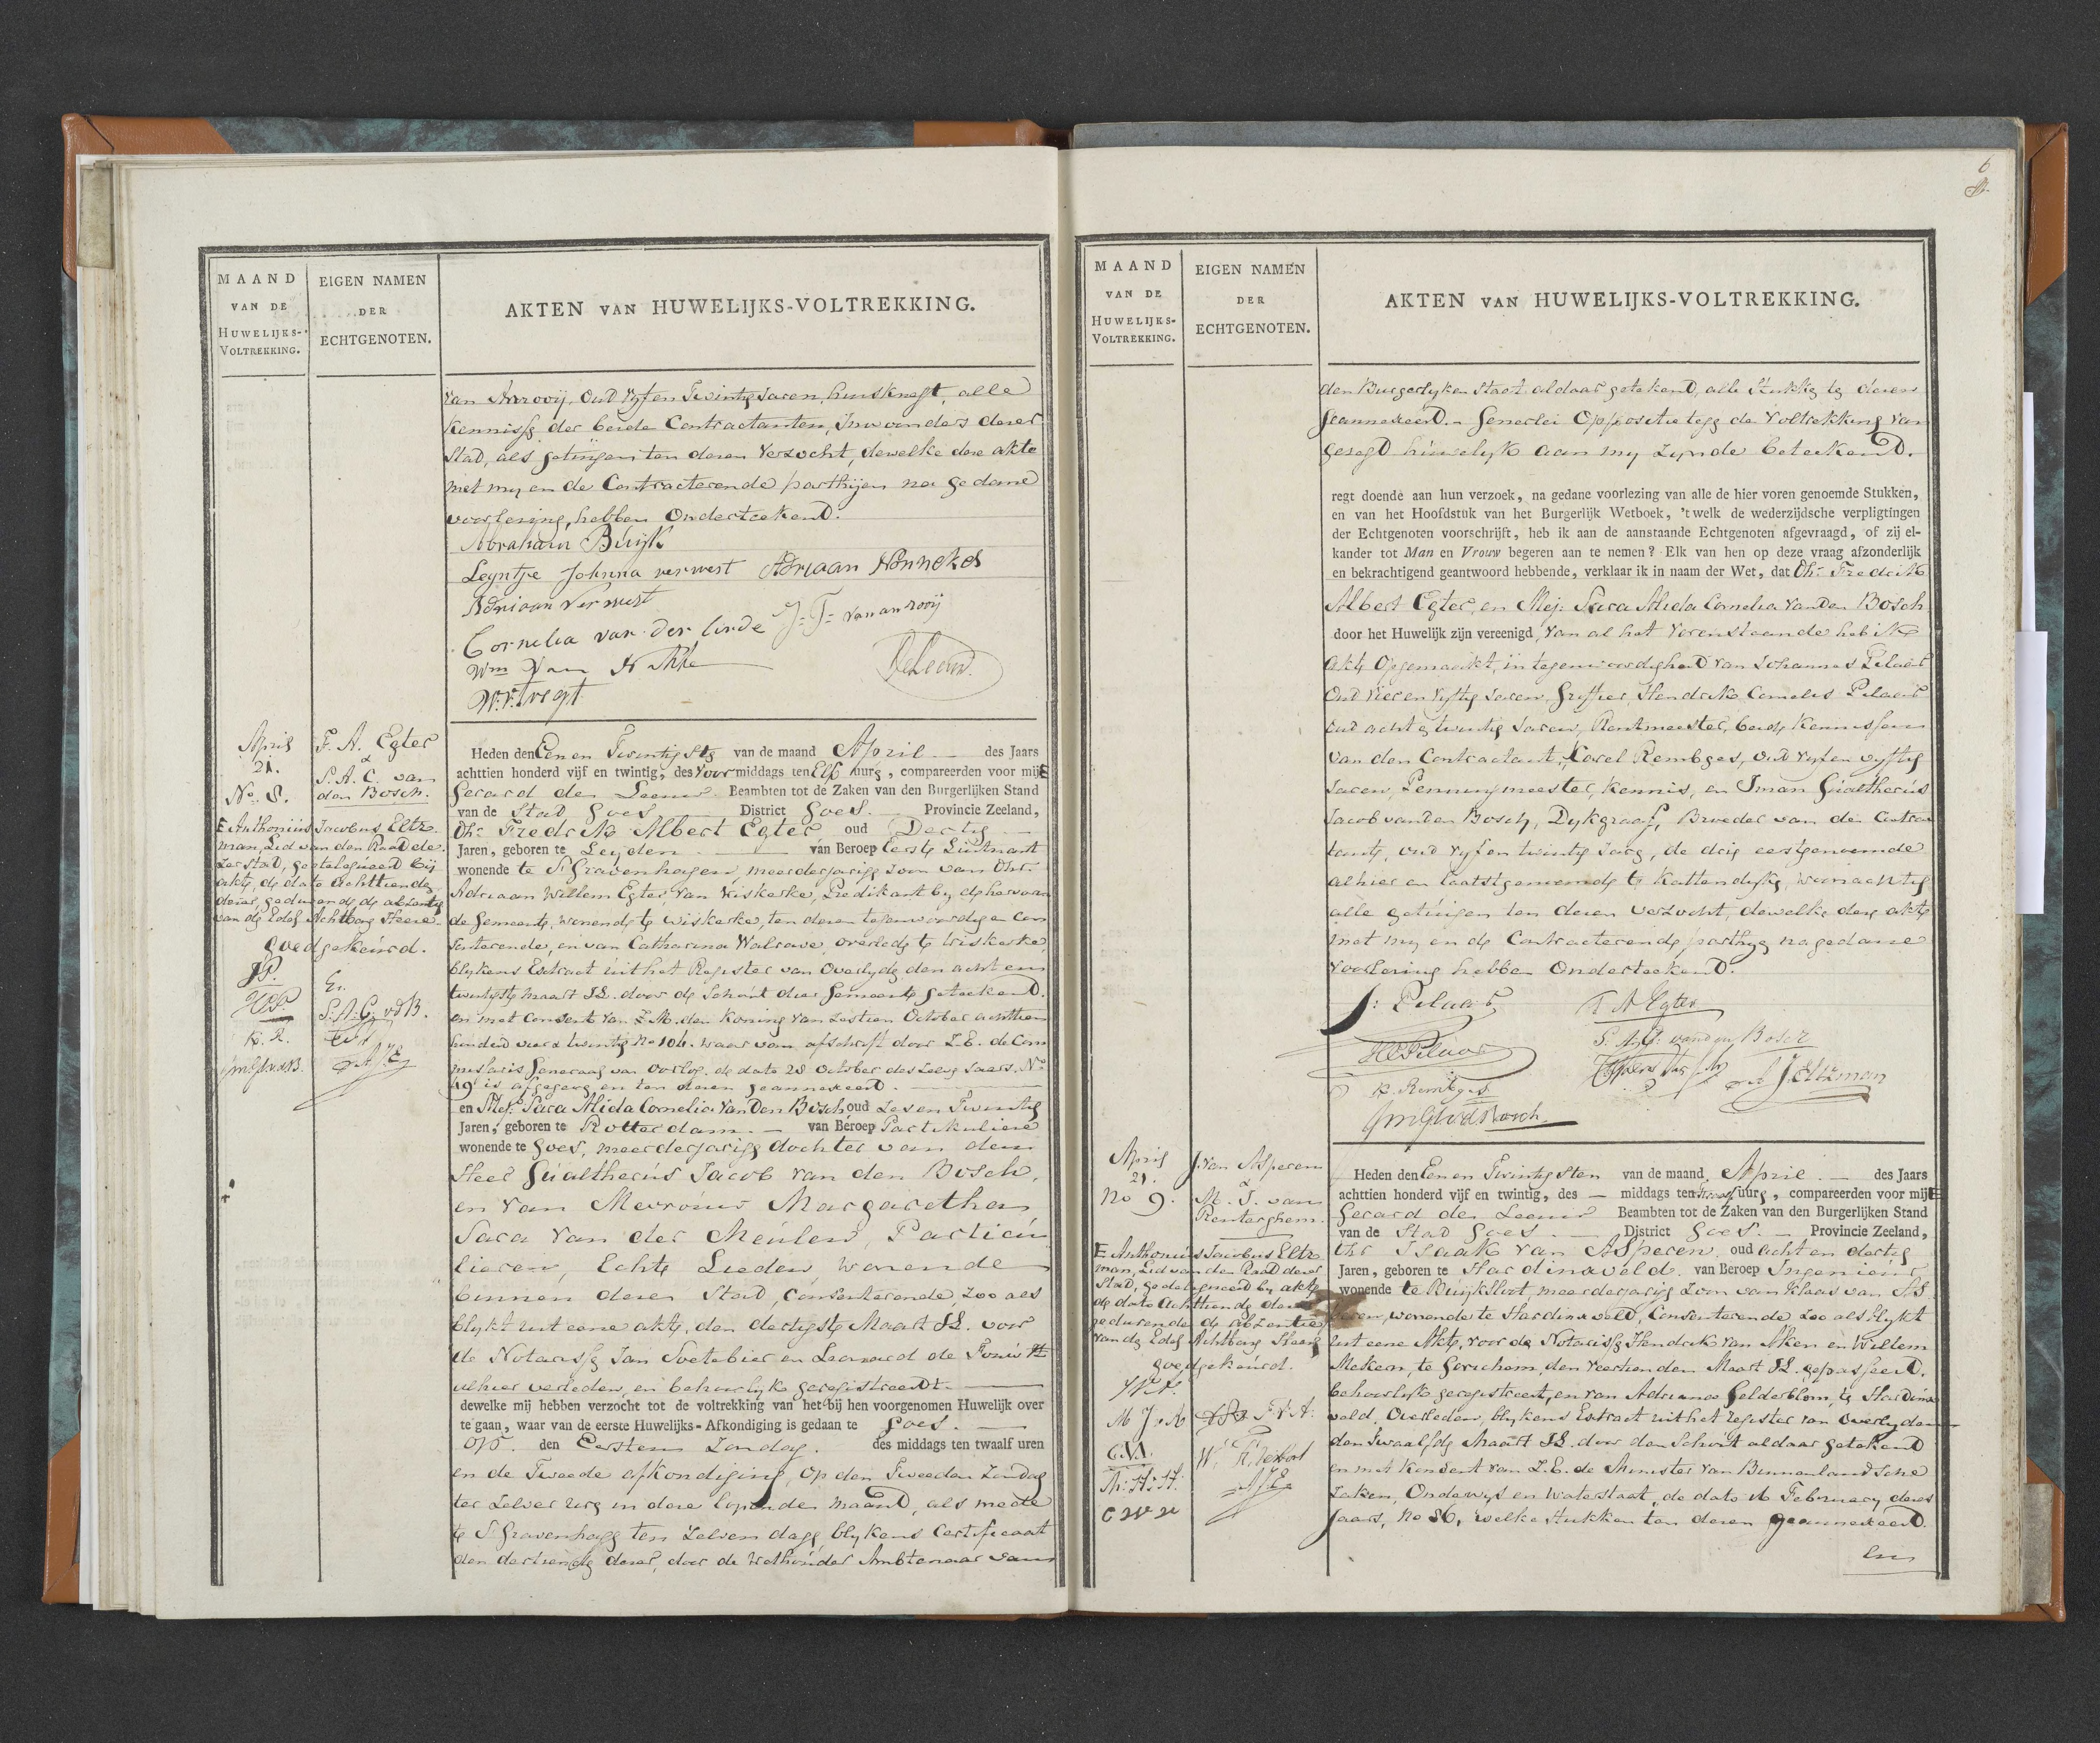 MAAND
VAN DE
HUWELIJKS-
VOLTREKKING.
EIGEN NAMEN
DER
ECHTGENOTEN.
AKTEN VAN HUWELIJKS-VOLTREKKING.
van Anrooij, Oud vyf en Twintig Jaren, huisknegt, alle
Kennisse der beide Contractanten, Inwoonders dezer
Stad, als getuigen ten dezen verzocht, dewelke deze akte
met my en de Contracterende parthijen na gedane
voorlezing, hebben Onderteekend.
Abraham Buijk
Leyntje Johnna verwest Adriaan Nonnekes
Adriaan Verwest
Cornelia van der linde J: F: van anrooij
Wm Van
DeLeeuw.
April
21.
No. 8.
F. A. Egter
&
S. A. C. van
den Bosch.
E Anthonius Jacobus Eltz-
man, Lid van den Raad de-
zer stad, gedelegueerd bij
akte, de dato achttiende
dezer, gedurende de absentie
van de Edel Achtbare Heere
goedgekeurd.
JP.
HCP.
K. R.
Er.
S. A. C. vdB.
Heden den Een en Twintigste van de maand April des Jaars
achttien honderd vijf en twintig, des Voormiddags ten Elf uure, compareerden voor mij E
Gerard de Leeuw Beambten tot de Zaken van den Burgerlijken Stand
van de Stad Goes District Goes. Provincie Zeeland,
Dhr Fredrik Albert Egter oud Dertig
Jaren, geboren te Leyden van Beroep Eerste Luitnant
wonende te S'Gravenhagen meerderjarige Zoon van Dhr.
Adriaan Willem Egter, van Wiskerke, Predikant by de hervorm
de Gemeente, wonende te Wiskerke, ten dezen tegenwoordig en Con
senterende, en van Catharina Walrave, overlede te Wiskerke,
blykens Extract uit het Register van Overlyde den acht en
twintigste Maart JL. door de Schout dier Gemeente geteekend.
en met Consent van Z.M. den Koning van zestien October achttien
honderd vier & twintig No 104. waar van afschrift door Z.E. de Com
missaris Generaal van oorlog, de dato 28 October des zelve Jaars. No
19 is afgegeve en ten dezen geannexeerd.
en Mej. Sara Alida Cornelia Van Den Bosch oud Zes en Twintig
Jaren, geboren te Rotterdam. van Beroep Partikuliere
wonende te Goes, meerderjarige dochter van den
Heer Gualtherus Jacob van den Bosch,
en van Mevrouw Margaretha
Sara van der Meulen, Particu
lieren, Echte Lieden, wonende
binnen dezer Stad, Consenterende zoo als
blykt uit eene akte, den dertigste Maart JL. voor
de Notarisse Jan Soetebier en Leonard de Fouw
alhier verleden, en behoorlyke geregistreerdt.
dewelke mij hebben verzocht tot de voltrekking van het bij hen voorgenomen Huwelijk over
te gaan, waar van de eerste Huwelijks-Afkondiging is gedaan te Goes.
op den Eersten Zondag. des middags ten twaalf uren
en de Tweede afkondiging, op den Tweeden Zondag
ter zelver ure in deze lopenden maand, als mede
te S'Gravenhage ten zelven dage, blykens Certificaat
den dertiende dezer, door de Wethouder Ambtenaar van
6
MAAND
VAN DE
HUWELIJKS-
VOLTREKKING.
EIGEN NAMEN
DER
ECHTGENOTEN.
AKTEN VAN HUWELIJKS-VOLTREKKING.
den Burgerlyken Staat aldaar getekend, alle Stukke te dezen
geannexeerd. Generlei Oppositie tege de voltrekking van
gezegd huwelyk aan my zynde beteekend.
regt doende aan hun verzoek, na gedane voorlezing van alle de hier voren genoemde Stukken,
en van het Hoofdstuk van het Burgerlijk Wetboek, 't welk de wederzijdsche verpligtingen
der Echtgenoten voorschrijft, heb ik aan de aanstaande Echtgenoten afgevraagd, of zij el-
kander tot Man en Vrouw begeren aan te nemen? Elk van hen op deze vraag afzonderlijk
en bekrachtigend geantwoord hebbende, verklaar ik in naam der Wet, dat Dhr Fredrik
Albert Egter, en Mej: Sara Alida Cornelia Van Den Bosch
door het Huwelijk zijn vereenigd, Van al het vorenstaande heb ik
akte Opgemaakt, in tegenwoordigheid van Johannes Pilaar
Oud vier en vyftig Jaren, Griffier, Hendrik Cornelis Pilaar
oud acht & twintig Jaren, Rentmeester, beide Kennissen
van den Contractant, Karel Rembges, oud vyf en vyftig
Jaren, Penningmeester, Kennis, en Iman Gualtherus
Jacob van den Bosch, Dykgraaf, Broeder van de Contrac
tante, oud vyf en twintig Jare, de drie eerstgenoemde
alhier en laatstgenoemde te Kattendyke, woonachtig
alle getuigen ten dezen verzocht, dewelke deze akte
met my en de Contracterende parthye na gedane
voorlezing hebben Onderteekend.
J: Pilaar
F A Egter
HCPilaar
S. A. C. van den Bosch
K. Rembges
A J Eltzman
JmGJvdBosch.
April
21.
No 9.
J. van Asperen
&
M. J. van
Renterghem.
E Anthonius Jacobus Eltz-
man, Lid van den Raad dezer
Stad, gedelegueerd by akte
de dato Achttiende dezer
gedurende de absentie
van de Edel Achtbare Heere
goedgekeurd.
Heden den Een en Twintigsten van de maand April des Jaars
achttien honderd vijf en twintig, des middags ten twaalf uure, compareerden voor mij E
Gerard de Leeuw Beambten tot de Zaken van den Burgerlijken Stand
van de Stad Goes District Goes. Provincie Zeeland,
Dhr Isaak van Asperen oud acht en dertig
Jaren, geboren te Hardinxveld. van Beroep Ingenieur
wonende te Buijksloot, meerderjarige Zoon van Klaas van As
peren, wonende te Hardinxveld, Consenterende zoo als blykt
uit eene Akte, voor de Notarisse Hendrik van Aken en Willem
Meken, te Gorichem, den veertienden Maart JL. gepasseerd.
behoorlyk geregistreert, en van Adriana Gelderblom, te Hardinx
veld, Overleden, blykens Extract uit het register van Overlyden
den Twaalfde Maart JL. door den Schout aldaar getekend
en met Konsent van Z.E. de Minister van Binnenlandsche
Zaken, Onderwys en Waterstaat, de dato 16 February dezes
Jaars, No 86, welke Stukken ten dezen geannexeerd.
en